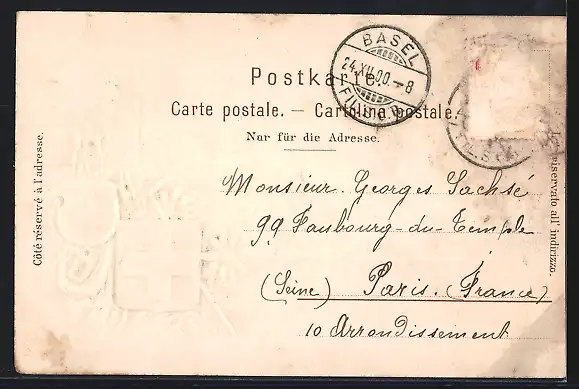 Postkarte.
Carte postale. — Cartolina postale.
Nur für die Adresse.
BASEL
24.XII.00.–8
Côté réservé à l'adresse.
riservato all' indirizzo.
Monsieur. Georges Sachsé
99 Faubourg-du-Temple
(Seine) Paris. (France)
10 Arrondissement